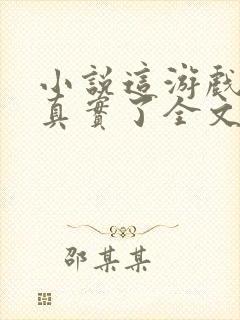 小說這游戲
真實了全文
邵某某